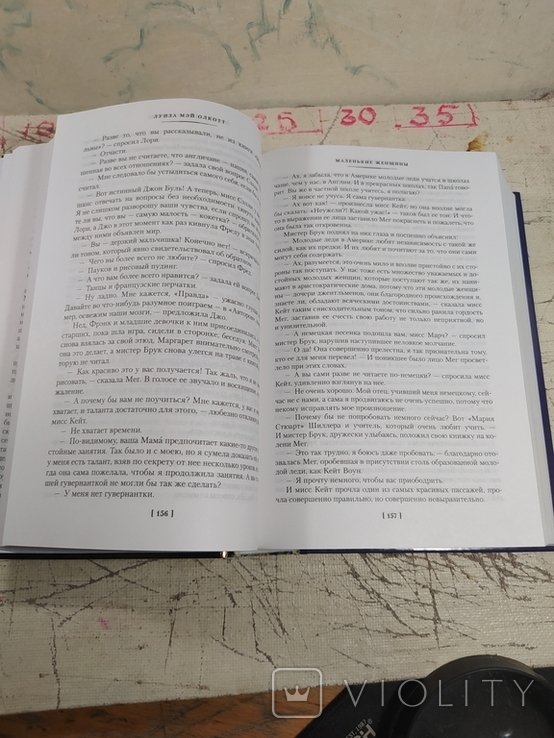 ЛУИЗА МЭЙ ОЛКОТТ
25 30 35
— Разве то, что вы рассказывали, не из книги
— спросил Лори.
— Отчасти.
— Разве вы не считаете, что англичане —
во всех отношениях? — задала свой вопрос
— Мне следовало бы стыдиться самого себя, если
считал.
— Вот истинный Джон Буль! А теперь, мисс
шанс отвечать на вопросы без необходимости
Я не слишком разворошу ваши чувства, если спрошу,
ли вы, что вы — самую малость — кокетка? — говорил
Лори, а Джо в этот момент как раз кивнула Фреду в знак
между ними объявлен мир.
— Вы — дерзкий мальчишка! Конечно нет! —
ли тоном, который явно свидетельствовал об обратном.
— Чего вы более всего не любите? — спросил Фред.
— Пауков и рисовый пудинг.
— А что вам более всего нравится? — задала ей вопрос
— Танцы и французские перчатки.
— Ну ладно. Мне кажется, «Правда» — ужасно
Давайте во что-нибудь разумное поиграем — в «Авторов»,
мер, освежим наши мозги, — предложил Джо.
Нед, Фрэнк и младшие девочки к ним присоединились,
старших, пока шла игра, сидели в сторонке, беседуя. Мисс
снова взялась за свой этюд, Маргарет внимательно смотрела,
она это делает, а мистер Брук снова улегся на траве с книгой,
рую не читал.
— Как красиво это у вас получается! Так жаль, что я не
рисовать, — сказала Мег. В голосе ее звучало и восхищение,
жаление.
— А почему бы вам не поучиться? Мне кажется, у вас
хватает, и таланта достаточно для этого, — любезно откликнулась
мисс Кейт.
— Не хватает времени.
— По-видимому, ваша Мама́ предпочитает какие-то другие
стойные занятия. Так было и с моею, но я сумела доказать ей,
у меня есть талант, взяв по секрету от нее несколько уроков,
гда она сама пожелала, чтобы я продолжила занятия. А вы
шей гувернанткой не могли бы так же сделать?
— У меня нет гувернантки.
[ 156 ]
МАЛЕНЬКИЕ ЖЕНЩИНЫ
— Ах, я забыла, что в Америке молодые леди учатся в школах
чаще, чем у нас, в Англии. И в прекрасных школах, так Папа́ говорит.
Вы же в частной школе учитесь, я полагаю?
— Я вовсе не учусь. Я сама гувернантка.
— Ах вот как! — произнесла мисс Кейт, но она вполне могла
бы сказать: «Неужели?! Какой ужас!» — таков был ее тон. И что-то
в выражении ее лица заставило Мег покраснеть и пожалеть, что
она была так откровенна.
Мистер Брук поднял на них глаза и поспешно объяснил:
— Молодые леди в Америке любят независимость с такой же
силой, как их предки. И их любят и почитают за то, что они сами
себя содержат.
— Ах, разумеется, это очень мило и вполне пристойно с их стороны
так поступать. У нас тоже есть множество уважаемых и достойных
молодых женщин, которые так поступают, и их нанимают
в аристократические дома, потому что эти молодые женщины
— дочери джентльменов, они благородного происхождения и,
знаете ли, обладают всяческими достоинствами, — сказала мисс
Кейт таким снисходительным тоном, что сильно ранила гордость
Мег, заставив ее счесть свою работу не только неприятной, но
и унизительной.
— А немецкая песенка подошла вам, мисс Марч? — спросил
мистер Брук, нарушив наступившее неловкое молчание.
— О да! Она совершенно прелестна, и я так признательна тому,
кто ее для меня перевел! — И поникшее было лицо Мег просветлело
при этих словах.
— А вы сами разве не читаете по-немецки? — спросила мисс
Кейт, удивленно взглянув на нее.
— Не очень хорошо. Мой отец, учивший меня немецкому, сейчас
не с нами, а сама я продвигаюсь не очень успешно, потому что
некому исправлять мое произношение.
— Почему бы не попробовать немного сейчас? Вот «Мария
Стюарт» Шиллера и учитель, который очень любит учить. —
И мистер Брук, дружески улыбаясь, положил свою книжку на колени
Мег.
— Это так трудно, я боюсь даже пробовать, — благодарно отозвалась
Мег, оробевшая в присутствии столь образованной молодой
леди, как Кейт Воун.
— Я прочту немного, чтобы вас приободрить.
И мисс Кейт прочла один из самых красивых пассажей, прочла
совершенно правильно, но совершенно невыразительно.
[ 157 ]
VIOLITY